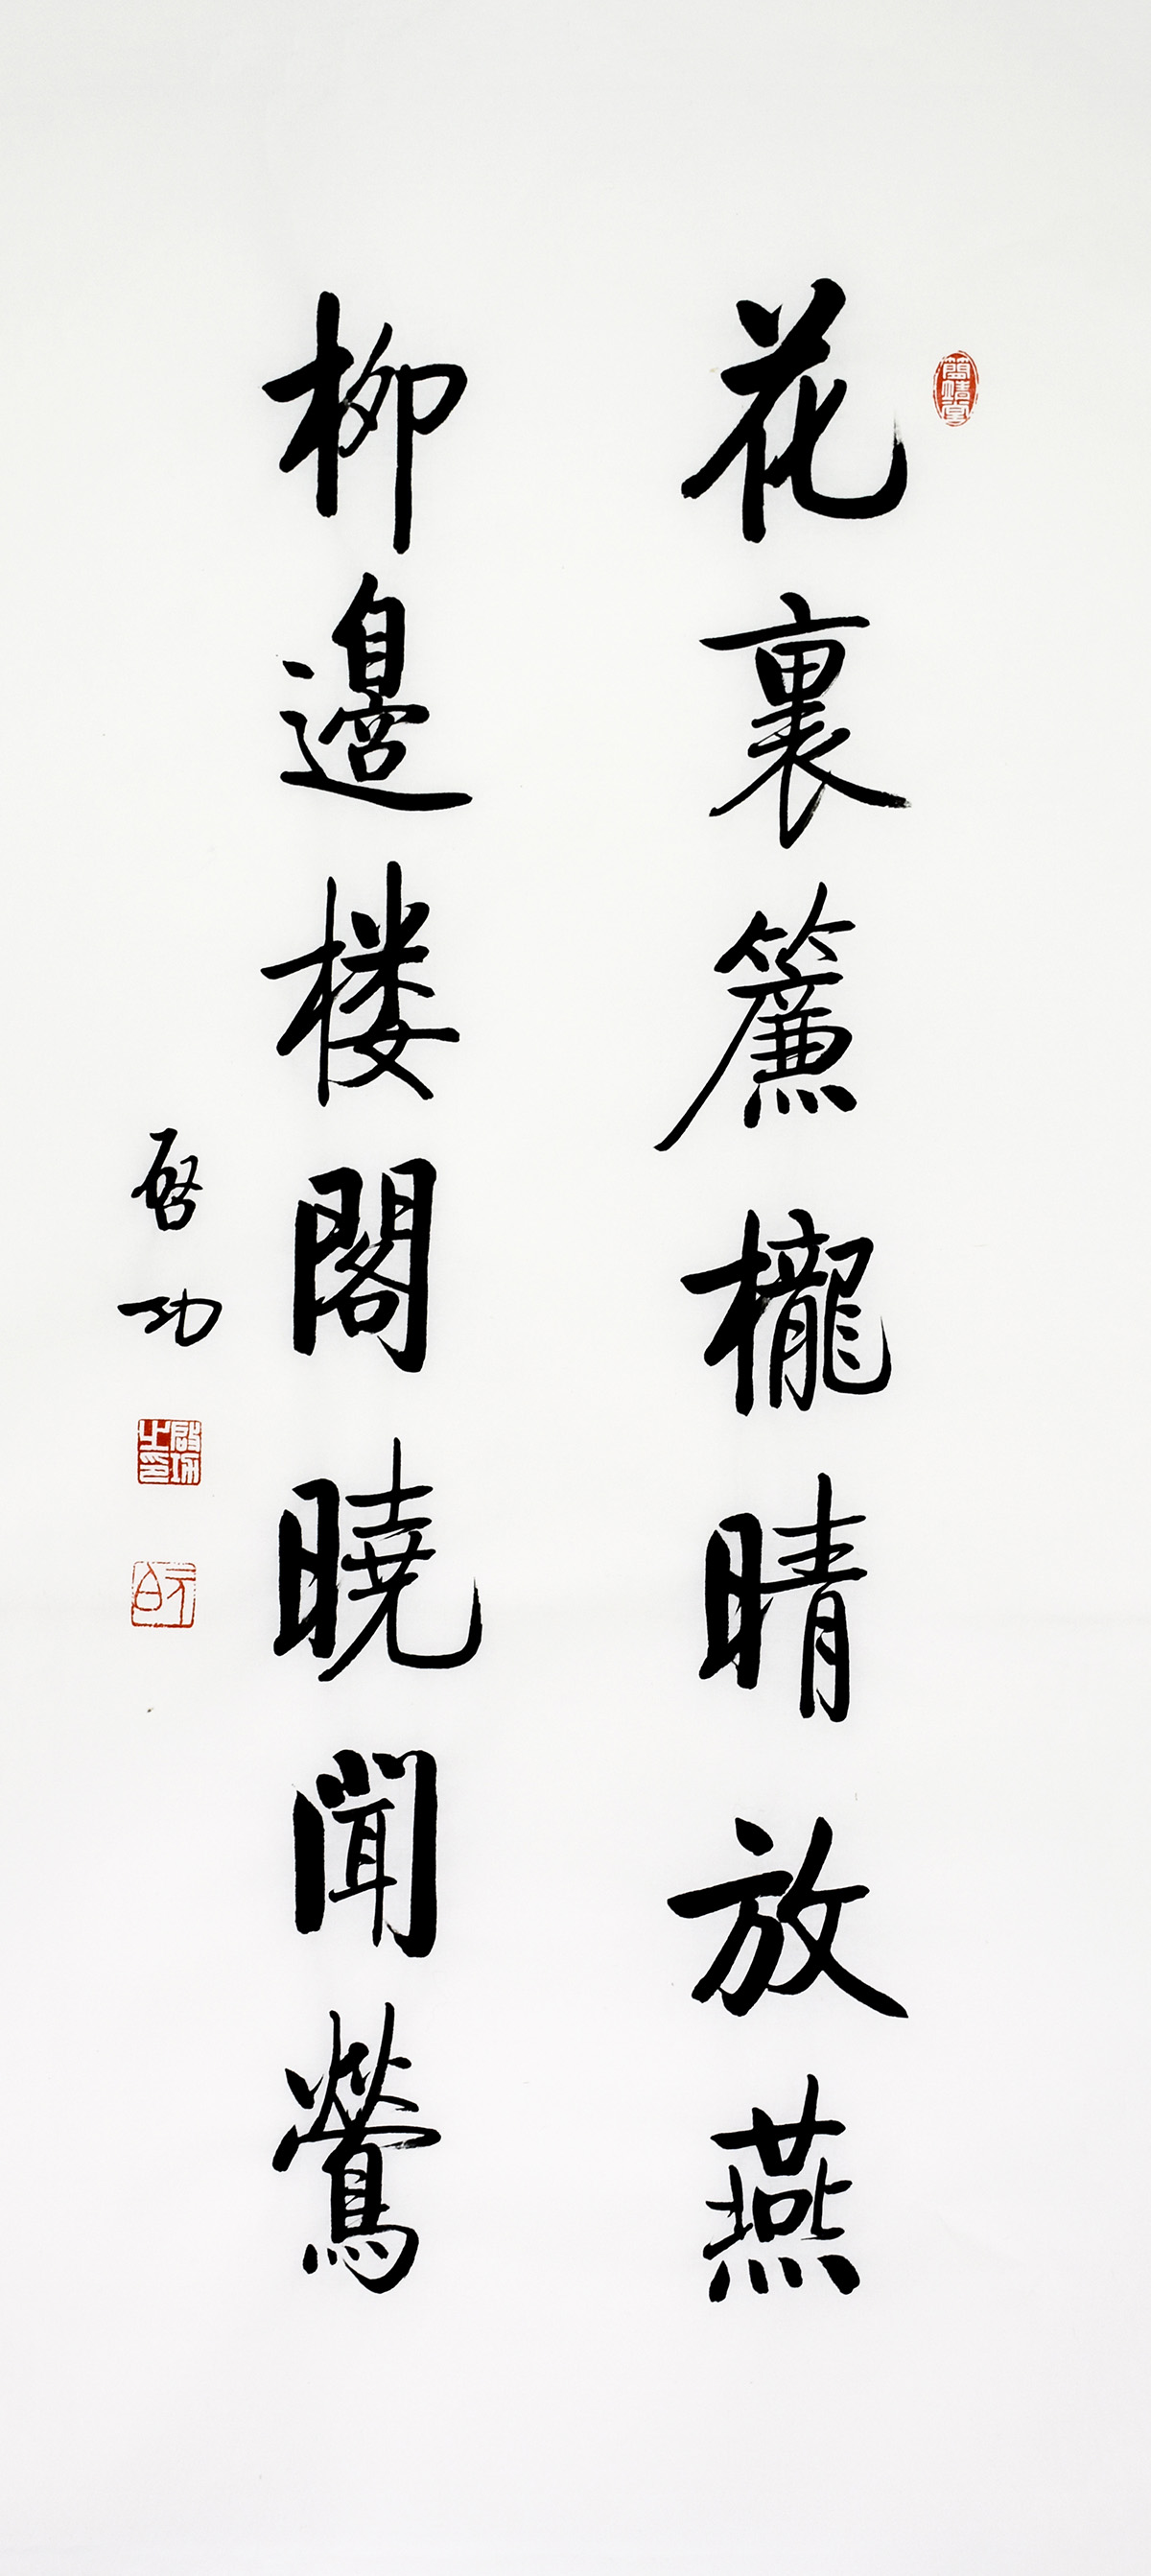 花裏簾櫳晴放燕
柳邊楼閣曉聞鶯
啓功
簡靖堂
啟功之印
元白